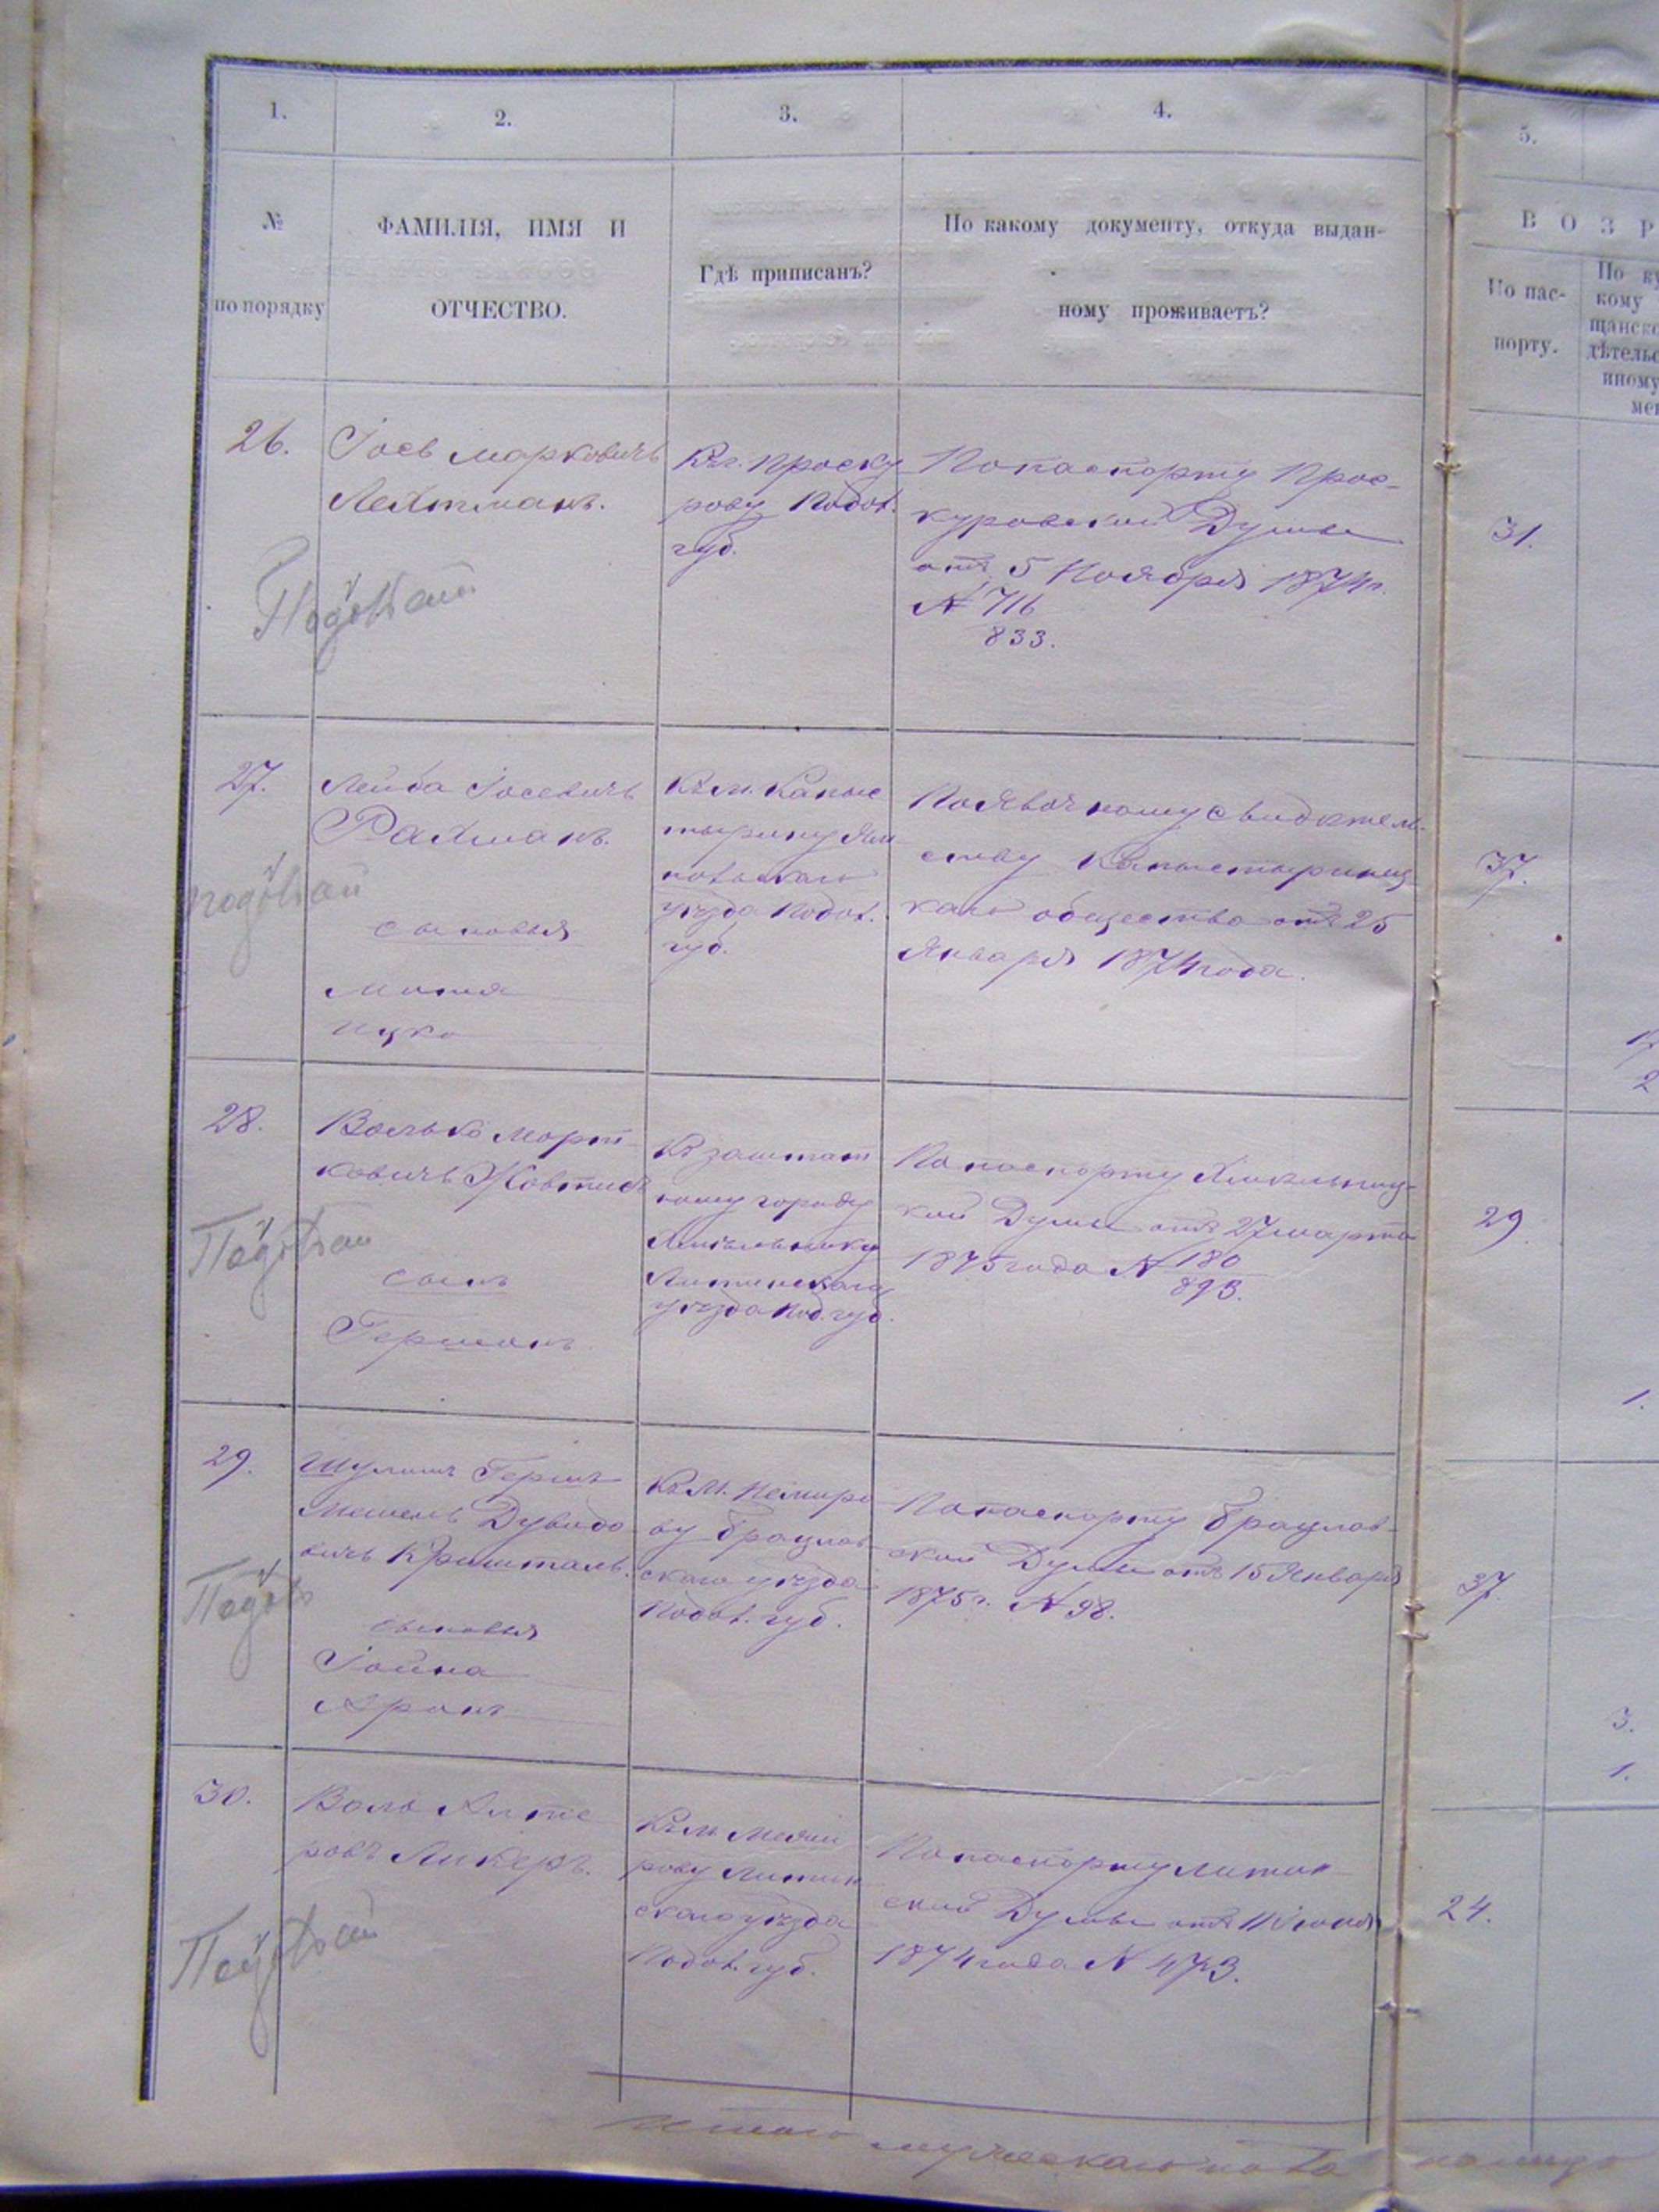 1.
2.
3.
4.
5.
№
по порядку
ФАМИЛІЯ, ИМЯ И
ОТЧЕСТВО.
Гдѣ приписанъ?
По какому документу, откуда выдан-
ному проживаетъ?
ВОЗР
По пас-
порту.
По ку
кому
щанско
дѣтельс
иному
мен
26.
Іосъ Марковичъ
Лейтманъ.
Къ г. Проску
рову Подол.
губ.
По паспорту Прос-
куровской Думы
отъ 5 Ноября 1874 г.
№ 716
833.
31.
27.
Лейба Іосевичъ
Рахманъ.
сыновья
Мотя
Ицко
Къ м.
уѣзда Подол.
губ.
По явочному свидѣтель-
ству
каго общества отъ 25
Января 1874 года.
37.
28.
Волько Морт
ковичъ
сынъ
Гершонъ
Къ заштат
ному городу
Хмѣльнику
Литинскаго
уѣзда Под. губ.
По паспорту Хмѣльниц-
кой Думы отъ 27 марта
1875 года № 180
893.
29
1.
29.
Шулимъ Гершъ
Дувидо
вичъ Кришталь.
сыновья
Іойна
Аронъ
Къ м. Немиро
ву Брацлав
скаго уѣзда
Подол. губ.
По паспорту Брацлав-
ской Думы отъ 15 Января
1875 г. № 98.
37.
3.
1.
30.
Воль Альте
ровъ Ликеръ.
Къ м. Межи
рову Литин
скаго уѣзда
Подол. губ.
По паспорту Литин
ской Думы отъ 11 Іюня
1874 года № 473.
24.
мужескаго пола